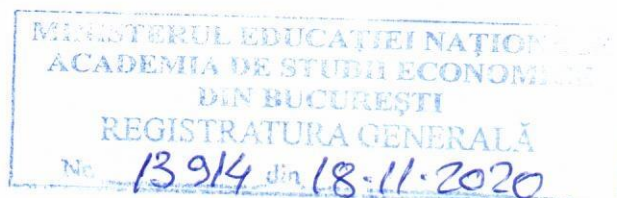 MINISTERUL EDUCAȚIEI NAȚION
ACADEMIA DE STUDII ECONOMI
DIN BUCUREȘTI
REGISTRATURA GENERALĂ
No. 13914 din 18.11.2020